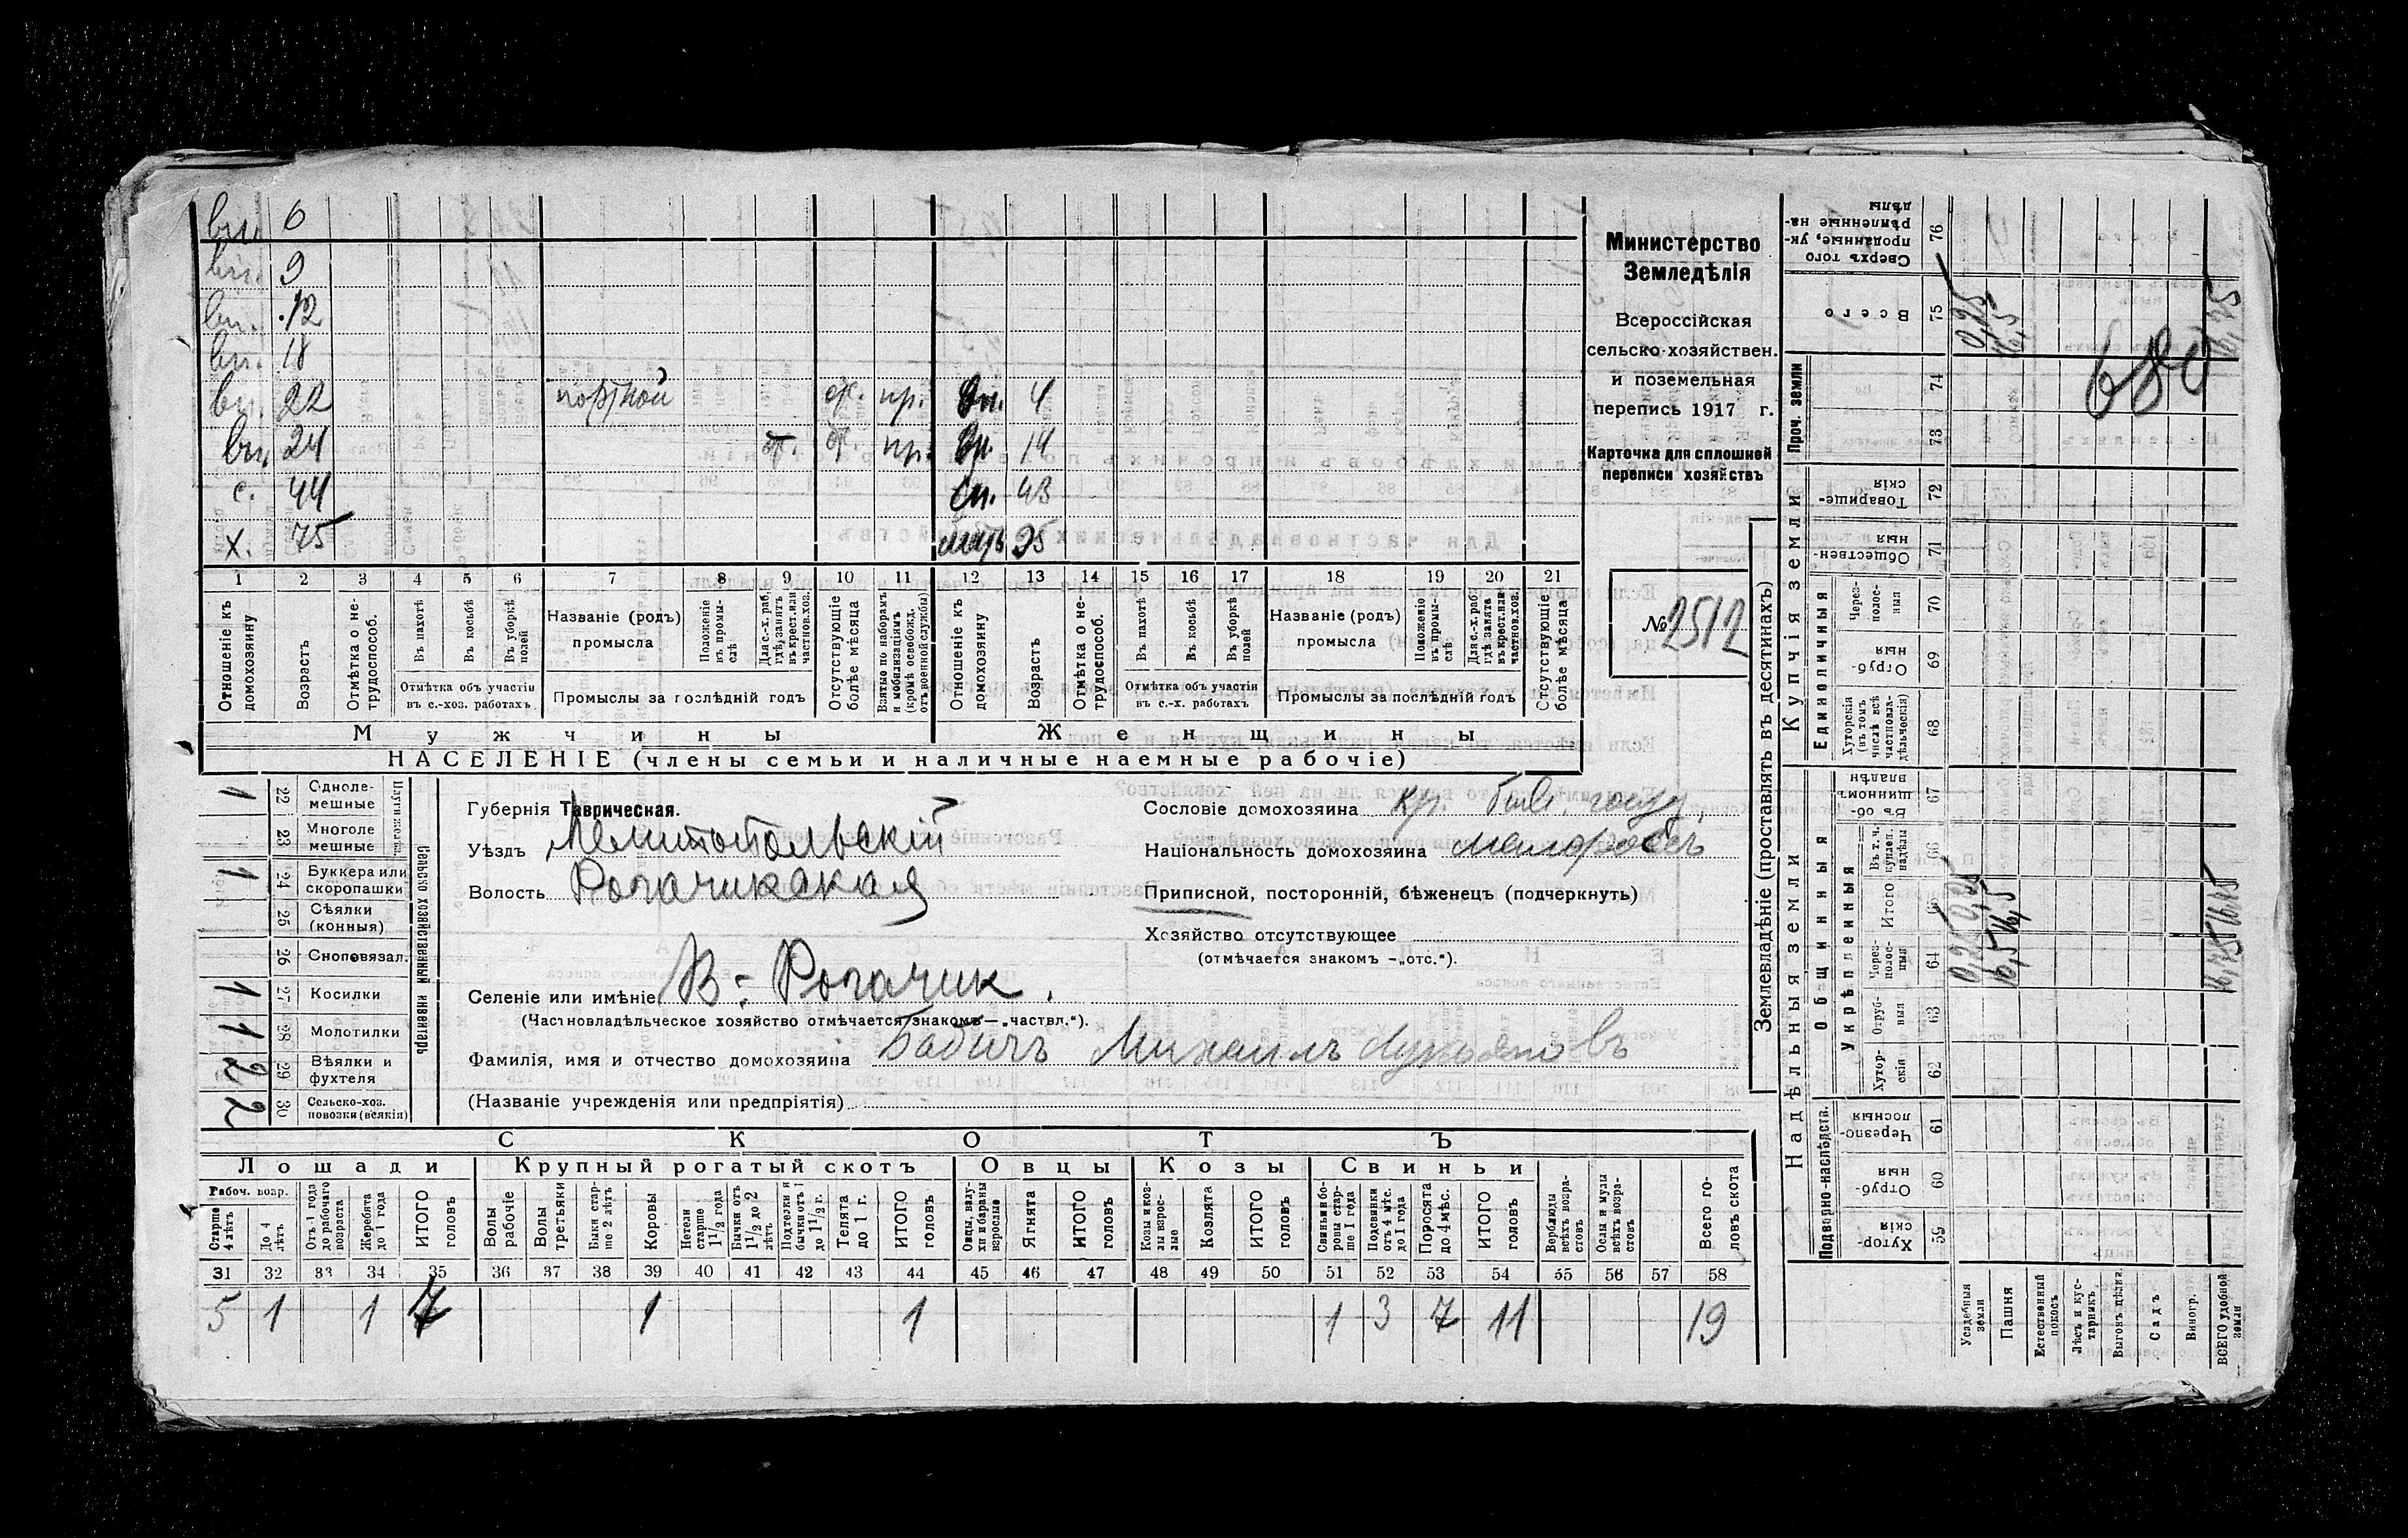 вн. 6
вн. 9
вн. 12
вн. 18
вн. 22 портной от. пр. вн. 4
вн. 24 от. пр. вн. 14
с. 44 сн. 43
х. 75 мать 95
1 2 3 4 5 6 7 8 9 10 11 12 13 14 15 16 17 18 19 20 21
Отношеніе къ домохозяину
Возрастъ
Отмѣтка о нетрудоспособ.
Въ пахотѣ
Въ косьбѣ
Въ уборкѣ полей
Отмѣтка объ участіи
въ с.-хоз. работахъ
Названіе (родъ)
промысла
Положеніе въ промыслѣ
Для с.-х. раб. гдѣ занятъ въ крест. или частнов. хоз.
Промыслы за послѣдній годъ
Отсутствующіе болѣе мѣсяца
Взятые по наборамъ и мобилизаціямъ (кромѣ освобожд. отъ военной службы)
Отношеніе къ домохозяину
Возрастъ
Отмѣтка о нетрудоспособ.
Въ пахотѣ
Въ косьбѣ
Въ уборкѣ полей
Отмѣтка объ участіи
въ с.-х. работахъ
Названіе (родъ)
промысла
Положеніе въ промыслѣ
Для с.-х. раб. гдѣ занята въ крест. или частнов. хоз.
Промыслы за послѣдній годъ
Отсутствующіе болѣе мѣсяца
Мужчины Женщины
НАСЕЛЕНІЕ (члены семьи и наличные наемные рабочіе)
Министерство
Земледѣлія
Всероссійская
сельско-хозяйствен.
и поземельная
перепись 1917 г.
Карточка для сплошной
переписи хозяйствъ
№ 2512
Сельско хозяйственный инвентарь
1 22 Однолемешные
23 Многолемешные
1 24 Буккера или скоропашки
25 Сѣялки (конныя)
26 Сноповязал.
1 27 Косилки
1 28 Молотилки
2 29 Вѣялки и фухтеля
2 30 Сельско-хоз. повозки (всякія)
Губернія Таврическая.
Уѣздъ Мелитопольскій
Волость Рогачикская
Селеніе или имѣніе В.- Рогачик.
(Частновладѣльческое хозяйство отмѣчается знакомъ—„частвл.“).
Фамилія, имя и отчество домохозяина Бабичъ Михаилъ Лукьяновъ
(Названіе учрежденія или предпріятія)
Сословіе домохозяина кр. быв. госуд.
Національность домохозяина малороссъ
Приписной, посторонній, бѣженецъ (подчеркнуть)
Хозяйство отсутствующее
(отмѣчается знакомъ —„отс.“).
СКОТЪ
Лошади Крупный рогатый скотъ Овцы Козы Свиньи
Рабоч. возр.
Старше 4 лѣтъ
До 4 лѣтъ
Отъ 1 года до рабочаго возраста
Жеребята до 1 года
ИТОГО головъ
Волы рабочіе
Волы третьяки
Быки старше 2 лѣтъ
Коровы
Нетели старше 1 1/2 года
Бычки отъ 1 1/2 до 2 лѣтъ
Подтелки и бычки отъ 1 до 1 1/2 г.
Телята до 1 г.
ИТОГО головъ
Овцы, валухи и бараны взрослые
Ягнята
ИТОГО головъ
Козы и козлы взрослые
Козлята
ИТОГО головъ
Свиньи и боровы старше 1 года
Подсвинки отъ 4 мѣс. до 1 года
Поросята до 4 мѣс.
ИТОГО головъ
Верблюды всѣхъ возрастовъ
Ослы и мулы всѣхъ возрастовъ
Всего головъ скота
31 32 33 34 35 36 37 38 39 40 41 42 43 44 45 46 47 48 49 50 51 52 53 54 55 56 57 58
5 1 1 7 1 1 1 3 7 11 19
Землевладѣніе (проставлять въ десятинахъ)
Надѣльныя земли Купчія земли Проч. земли
Подворно-наслѣдств.
Общинныя
Укрѣпленныя
Единоличныя
Хуторскія 59
Отрубныя 60
Черезполосныя 61
Хуторскія 62
Отрубныя 63
Черезполосныя 64
Итого 65
Въ т. ч. купчія надѣлы 66
Въ общинномъ владѣн 67
Хуторскія (въ томъ числѣ всѣ частновладѣльческія) 68
Отрубныя 69
Черезполосныя 70
Общественныя 71
Товарищескія 72
73
74
Всего 75
Сверхъ того проданные, укрѣпленные надѣлы 76
Усадебныя земли 0,25 0,25 0,25
Пашня 16,5 16,5 16,5
Естественный покосъ
Лѣсъ и кустарникъ
Выгонъ цѣлин.
Садъ
Виногр.
ВСЕГО удобной земли 16,75 16,75 16,75
680